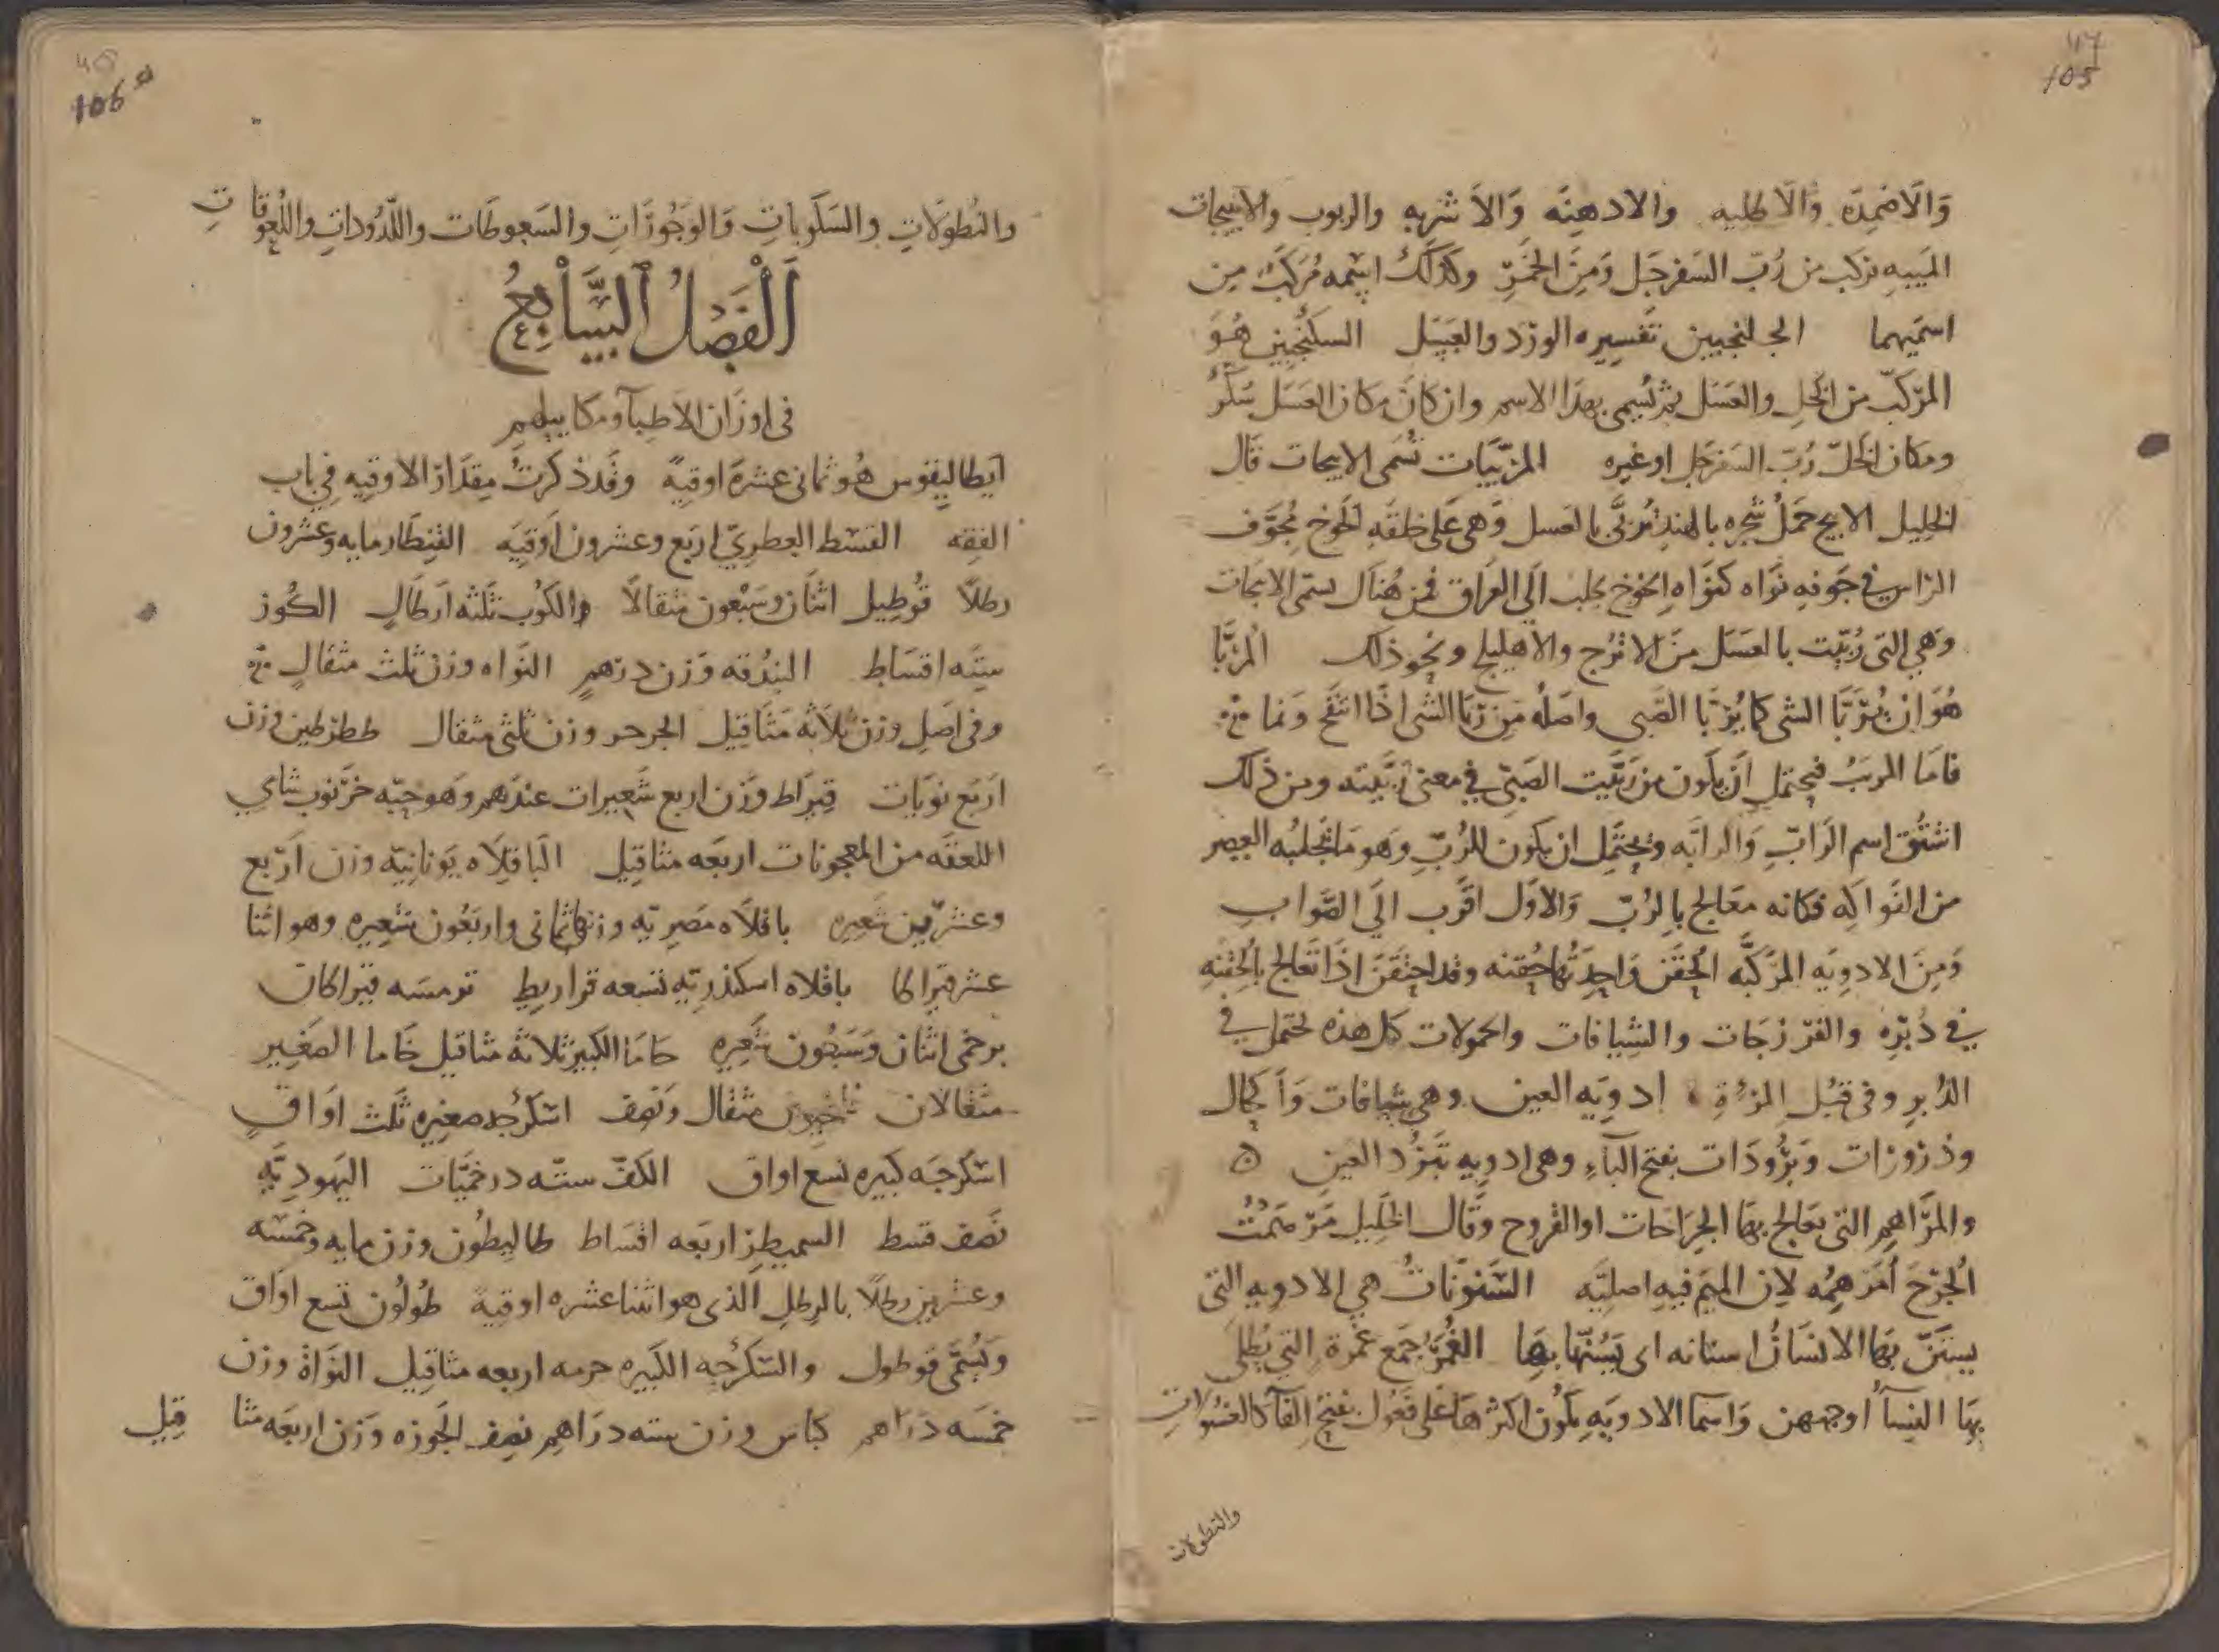 105
والاضمده والاطليه والادهنه والاشربه والربوب والانبيجات
الميبه تركب من رُبّ السفرجل ومن الخمر وكذلك اسمه مركب من
اسميهما الجلنجبين تفسيره الورد والعسل السكنجبين هو
المركب من الخل والعسل ثم يسمى بهذا الاسم وان كان مكان العسل سكر
ومكان الخل رُبّ السفرجل او غيره المربيات تسمى الانبجات قال
الخليل الانبج حمل شجره بالهند تُربَّى بالعسل وهى على خلقه الخوخ مجوف
الراس فى جوفه نواه كنواه الخوخ يجلب الى العراق فمن هناك يسمى الانبجات
وهي التى رُبّبت بالعسل من الاترج والاهليلج ونحو ذلك المربّا
هو ان يُربّا الشى كما يُربّا الصبى واصله من ربا الشى اذا انتفخ ونما
فاما المربب فيحتمل ان يكون من ربّيت الصبىّ فى معنى ربّيته ومن ذلك
اشتُق اسم الرابّ والرابّه ويحتمل ان يكون للرُبّ وهو ما تحلبه العصر
من الفواكه فكانه معالج بالرُبّ والاول اقرب الى الصواب
ومن الادويه المركّبه الحُقن واحدتها حُقنه وقد احتقن اذا تعالج بالحقنه
فى دُبره والفرزجات والشيافات والحمولات كل هذه تحتمل فى
الدُبر وفى قُبُل المرأة ادويه العين وهى شيافات وأكحال
وذرورات وبَرُودات بفتح الباء وهى ادويه تبرّد العين ۵
والمراهم التى يعالج بها الجراحات او القروح وقال الخليل مَرْهَمْتُ
الجُرْحَ اُمَرهِمُه لان الميم فيه اصليّه السَنونات هي الادويه التى
يستنّ بها الانسان اسنانه اى يَسُنّها بها الغُمَر جمع غُمرة التي يُطلى
بها النساء اوجههن واسما الادويه يكون اكثرها على فَعُول بفتح الفاء كالغسولات
والنطولات
106
والنطولات والسكوبات والوجورات والسعوطات واللدودات واللعوقات
اَلْفَصْلُ اُلسَّابِعُ
فى اوزان الاطباء ومكاييلهم
ايطاليقوس هو ثمانى عشره اوقيّه وقد ذكرت مقدار الاوقيه فى باب
الفقه القسط العطرىّ اربع وعشرون اوقيه القنطار مايه وعشرون
رطلا قُوطيل اثنان وسبعون مثقالا والكوب ثلثه ارطال الكوز
ستّه اقساط البندقه وزن درهم النواه وزن ثلث مثقال
وفى اصل وزن ثلاثه مثاقيل وزن ثلثى مثقال وزن
اربع نويات قيراط وزن اربع شعيرات عندهم وهو حبّه خرنوب شاي
اللعقه من المعجونات اربعه مثاقيل الباقلاه يونانيّه وزن اربع
وعشرين شعيره باقلاه مصريّه وزنها ثمانى واربعون شعيره وهو اثنا
عشر قيراطا باقلاه اسكندريّه تسعه قراريط ترمسه قيراطان
درخمى اثنان وسبعون شعيره حاما الكبير ثلاثه مثاقيل حاما الصغير
مثقالان مثقال ونصف اسكرجه صغيره ثلث اواق
اسكرجه كبيره تسع اواق الكفّ ستّه درخميّات اليهوديّه
نصف قسط اربعه اقساط طاليطون وزن مايه وخمسه
وعشرين رطلا بالرطل الذى هو اثنا عشره اوقية طُولُون تسع اواق
ويُسمّى قوطول والسكرّجه الكبيره اربعه مثاقيل النواة وزن
خمسه دراهم كباس وزن سته دراهم نصف الجوزه وزن اربعه مثاقيل